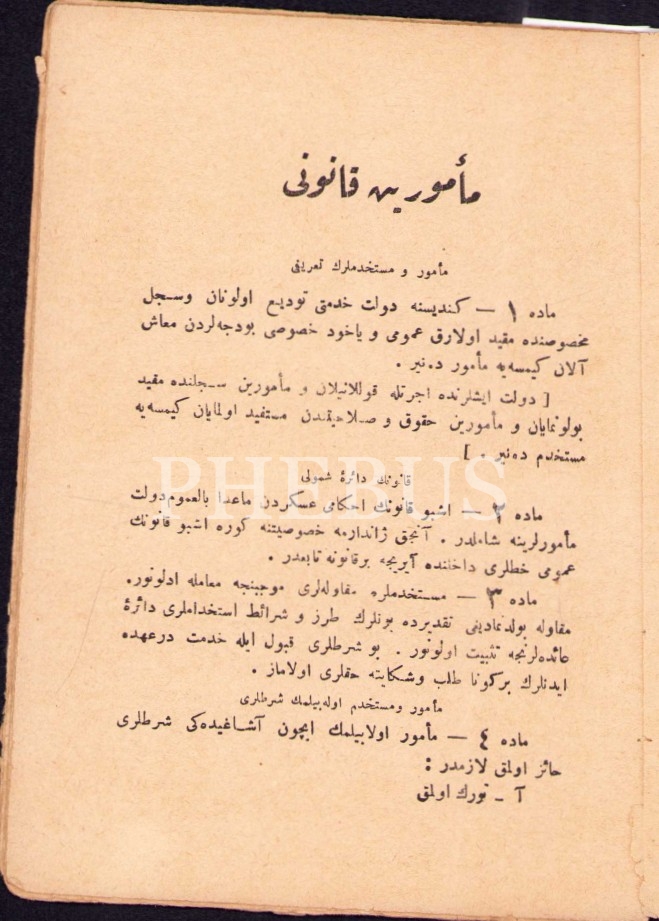 مأمورين قانونى
مأمور و مستخدملرك تعريفى
ماده ١ — كنديسنه دولت خدمتى توديع اولونان وسجل
مخصوصنده مقيد اولارق عمومى و ياخود خصوصى بودجه‌لردن معاش
آلان كيمسه‌يه مأمور دنير .
[ دولت ايشلرنده اجرتله قوللانيلان و مأمورين سجلنده مقيد
بولونمايان و مأمورين حقوق و صلاحيتندن مستفيد اولمايان كيمسه‌يه
مستخدم ده‌نير . ]
قانونك دائرۀ شمولى
ماده ٢ — اشبو قانونك احكامى عسكردن ماعدا بالعموم دولت
مأمورلرينه شاملدر . آنجق ژاندارمه خصوصيتنه كوره اشبو قانونك
عمومى خطلرى داخلنده آيريجه برقانونه تابعدر .
ماده ٣ — مستخدملره مقاوله‌لرى موجبنجه معامله اولونور.
مقاوله بولدنمادينى تقديرده بونلرك طرز و شرائط استخداملرى دائرۀ
عائده‌لرنجه تثبيت اولونور . بو شرطلرى قبول ايله خدمت درعهده
ايدنلرك بركونا طلب وشكايته حقلرى اولاماز .
مأمور ومستخدم اوله‌بيلمك شرطلرى
ماده ٤ — مأمور اولابيلمك ايچون آشاغيده‌كى شرطلرى
حائز اولمق لازمدر :
آ ـ تورك اولمق
PHEBUS